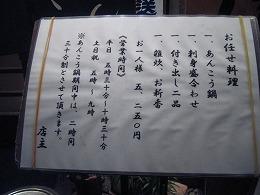 お任せ料理
一、あんこう鍋
一、刺身盛合わせ
一、付き出し二品
一、雑炊、お新香
お一人様　五、二五〇円
《営業時間》
平日　五時三十分~十時三十分
土日祝　五時~九時
※あんこう鍋期間中は、二時間
三十分制とさせて頂きます。
店主